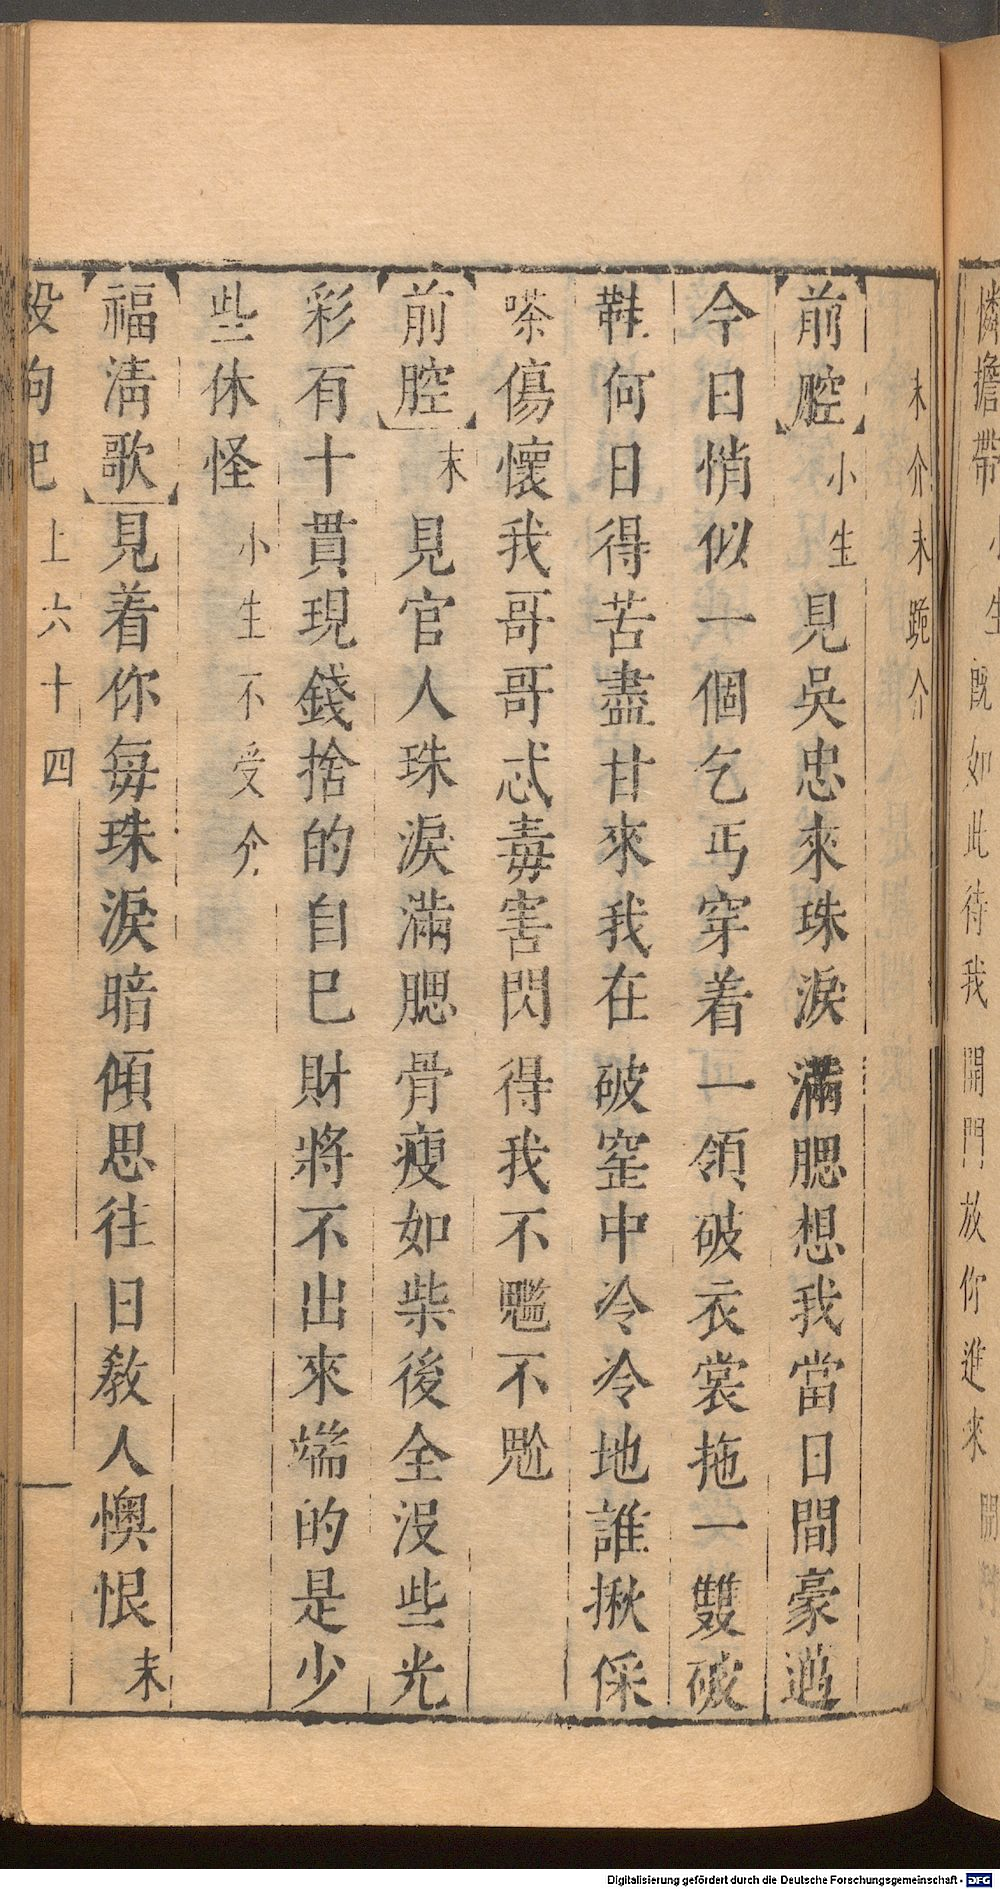 憐擔帶 小生 既如此待我開門放你進來 開門
末介末跪介
前腔 小生 見吳忠來珠淚滿腮想我當日間豪邁
今日悄似一個乞丐穿着一領破衣裳拖一雙破
鞋何日得苦盡甘來我在破窰中冷冷地誰揪倸
嗏傷懷我哥哥忒毒害閃得我不尷不尬
前腔 末 見官人珠淚滿腮骨瘦如柴後全没些光
彩有十貫現錢捨的自已財將不出來端的是少
些休怪 小生不受介
福淸歌 見着你每珠淚暗傾思往日教人懊恨 末
殺狗記 上 六十四
Digitalisierung gefördert durch die Deutsche Forschungsgemeinschaft - DFG